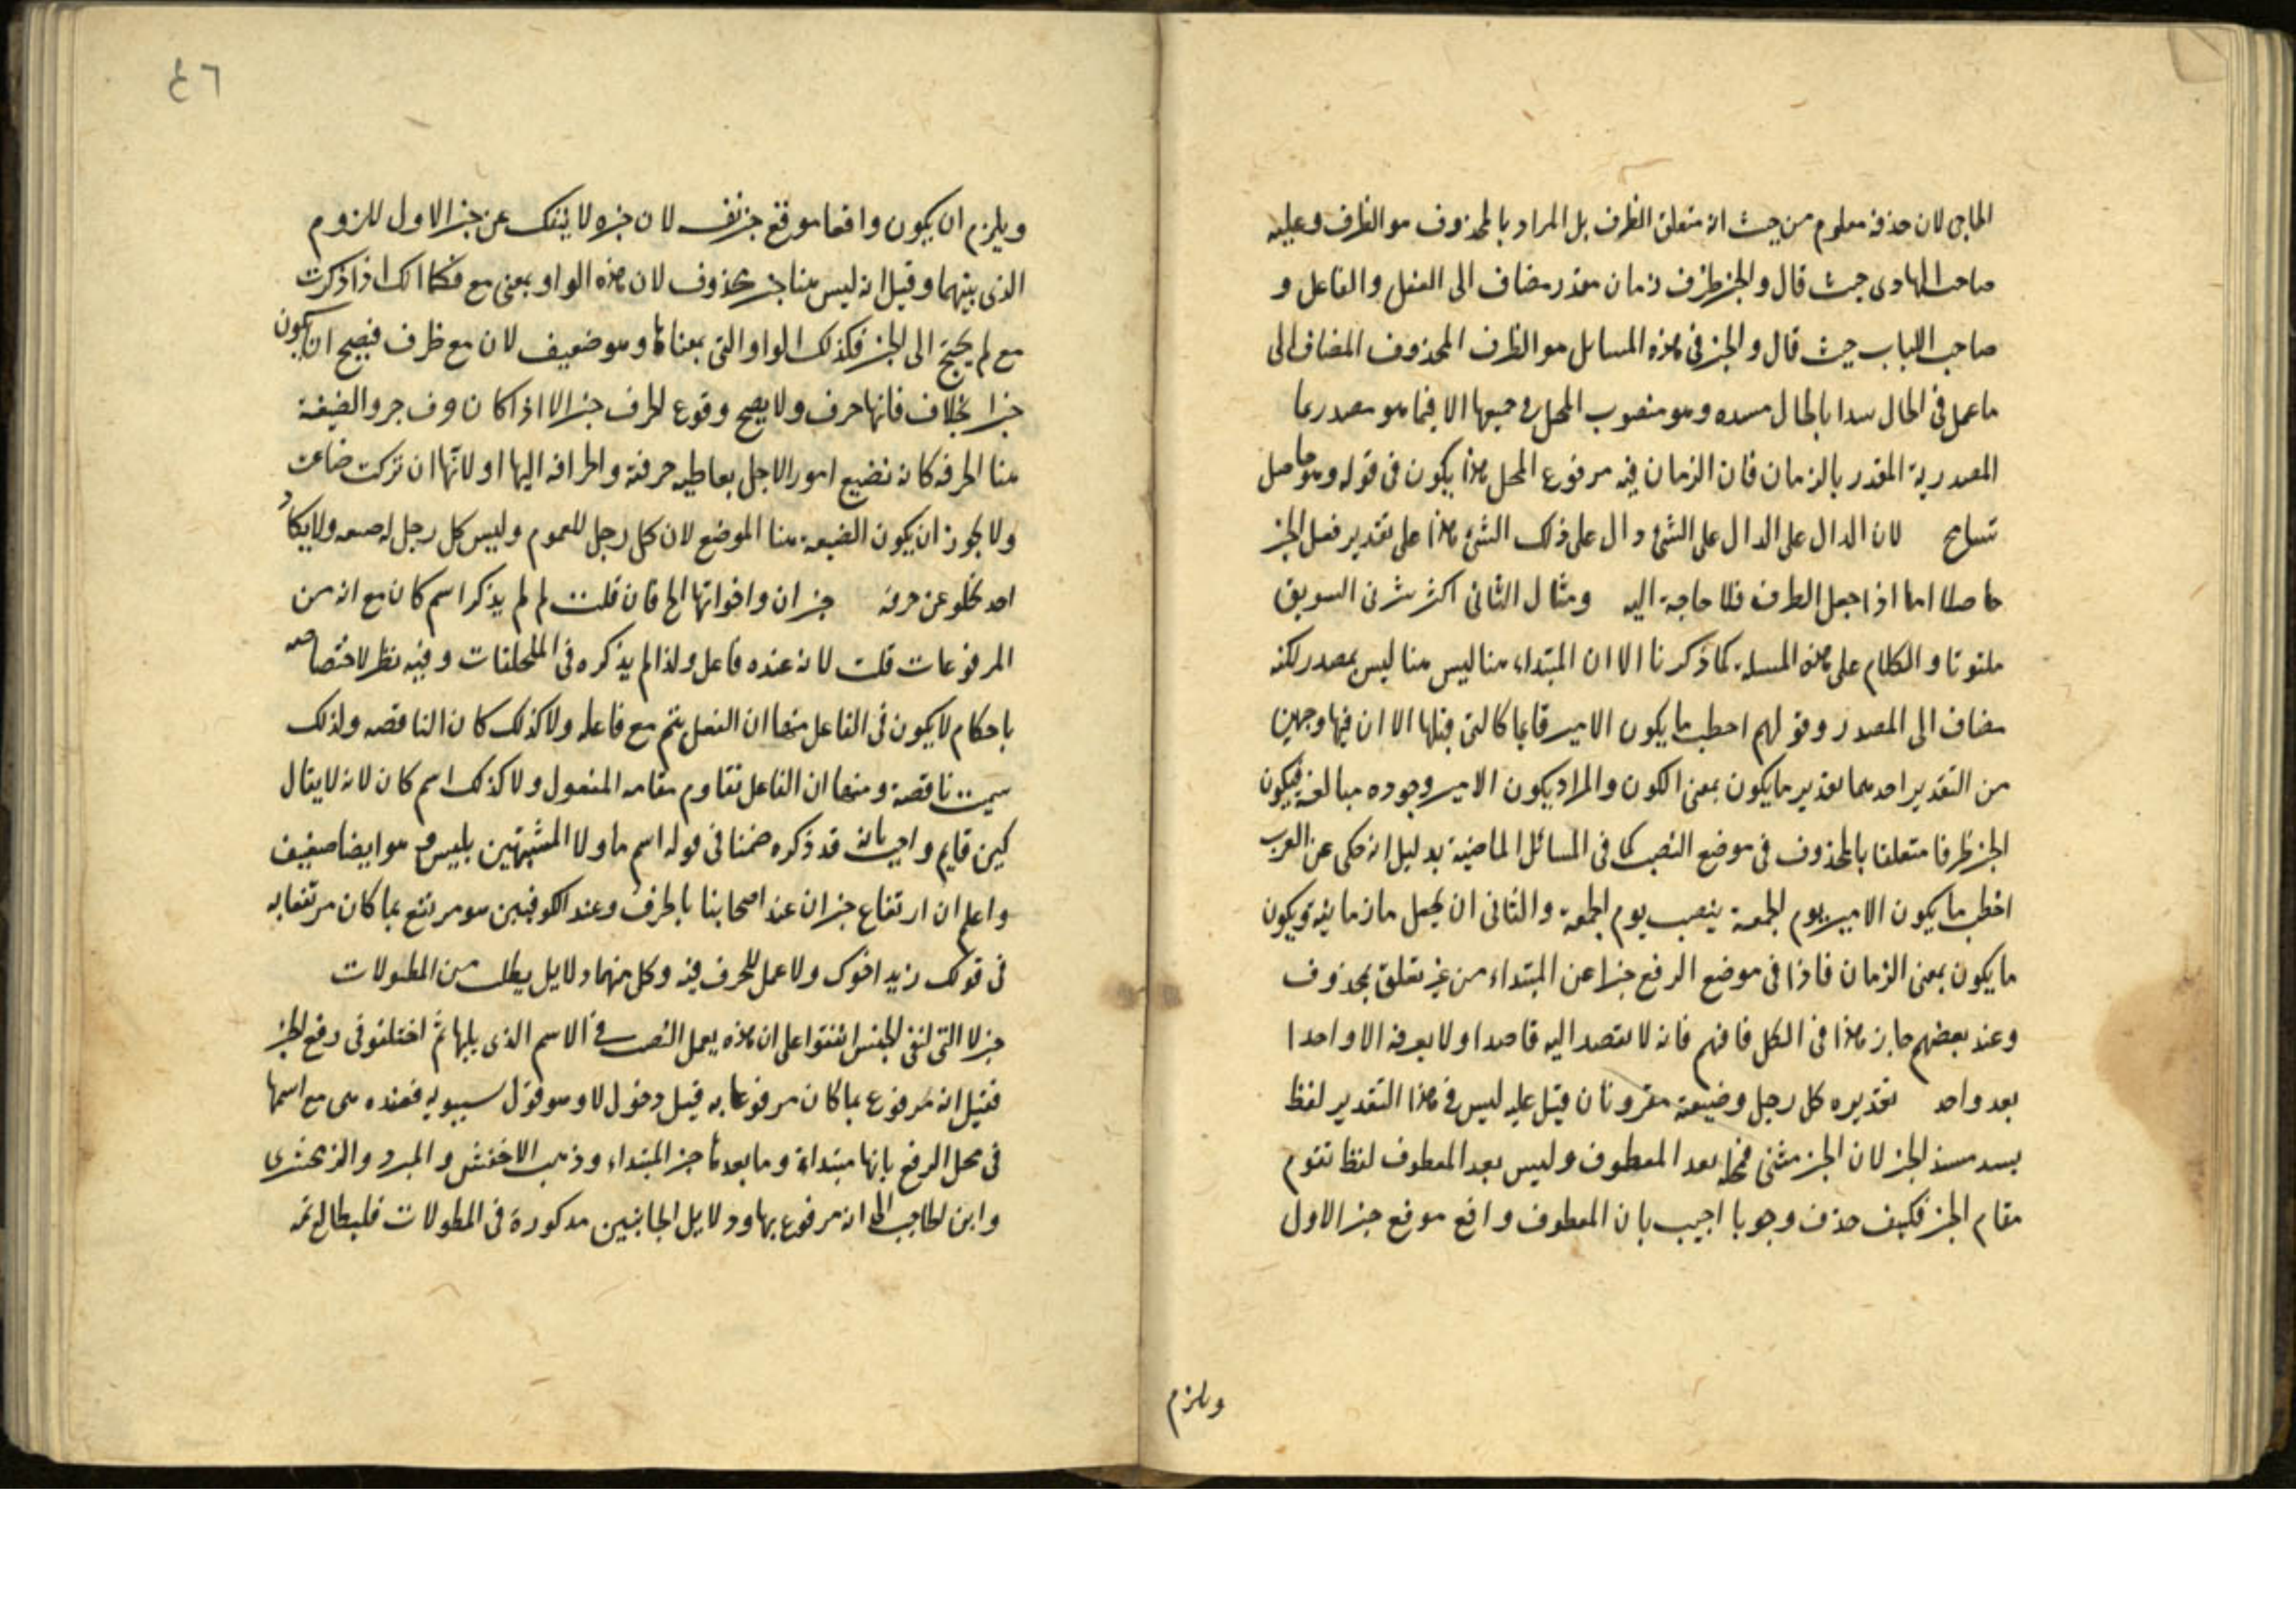 الماجي لان حذفه معلوم من حيث انه متعلق الظرف بل المراد بالمحذوف هو الظرف وعليه
صاحب الهادى حيث قال والخبر ظرف زمان مقدر مضاف الى الفعل والفاعل و
صاحب اللباب حيث قال والخبر فى هذه المسايل هو الظرف المحذوف المضاف الى
ما عمل فى الحال سدا بالحال مسده وهو منصوب المحل فى جميعها الا فيما هو مصدر بما
المصدرية المقدر بالزمان فان الزمان فيه مرفوع المحل هذا يكون فى قوله وهو حاصل
تسامح لان الدال على الدال على الشئ دال على ذلك الشئ هذا على تقدير فعل الخبر
حاصلا اما اذا جعل الظرف فلا حاجة اليه ومثال الثانى اكثر شربى السويق
ملتوتا والكلام على هذه المسلة كما ذكرنا الا ان المبتداء هنا ليس هنا ليس بمصدر لكنه
مضاف الى المصدر وقولهم اخطب ما يكون الامير قايما كالتى قبلها الا ان فيها وجهين
من التقدير احدهما تقدير ما يكون بمعنى الكون والمراد بكون الامير وجوده مبالغة فيكون
الخبر ظرفا متعلقا بالمحذوف فى موضع النصب كما فى المسائل الماضية بدليل انه حكى عن العرب
اخطب ما يكون الامير يوم الجمعة ينصب يوم الجمعة والثانى ان يجعل ما زمانية ويكون
ما يكون بمعنى الزمان فاذا فى موضع الرفع خبرا عن المبتداء من غير تعلق بمحذوف
وعند بعضهم جايز هذا فى الكل فافهم فانه لا يقصد اليه قاصدا ولا يعرفه الا واحدا
بعد واحد تقديره كل رجل وضيعته مقرونان قيل عليه ليس فى هذا التقدير لفظ
يسد مسد الخبر لان الخبر مثنى فمحله بعد المعطوف وليس بعد المعطوف لفظ تقوم
مقام الخبر فكيف حذف وجوبا اجيب بان المعطوف واقع موقع خبر الاول
ويلزم
٤٦
ويلزم ان يكون واقعا موقع خبر نفسه لان خبره لا ينفك عن خبر الاول للزوم
الذى بينهما وقيل انه ليس هنا خبر محذوف لان هذه الواو بمعنى مع فكما انك اذا ذكرت
مع لم يحتج الى الخبر فكذلك الواو التى بمعناها وهو ضعيف لان مع ظرف فيصح ان يكون
خبرا بخلاف فانها حرف ولا يصح وقوع الحرف خبرا الا اذا كان حرف جر والضيعة
هنا الحرفه كانه تضيع امور الاجل بعاطيه حرفته واطرافه اليها او لانها ان تركت ضاعت
ولا يجوز ان يكون الضيعة هنا الموضع لان كل رجل للعموم وليس كل رجل له ضيعه ولا يكاد
احد يخلو عن حرفه خبر ان واخواتها الخ فان قلت لم لم يذكر اسم كان مع انه من
المرفوعات قلت لانه عنده فاعل ولذا لم يذكره فى الملحقات وفيه نظر لاختصاصه
باحكام لا يكون فى الفاعل منها ان الفعل يتم مع فاعله ولا كذلك كان الناقصه ولذلك
سميت ناقصة ومنها ان الفاعل تقاوم مقامه المفعول ولا كذلك اسم كان لانه لا يقال
كين قايم واجيب بانه قد ذكره ضمنا فى قوله اسم ما ولا المشبهتين بليس وهو ايضا ضعيف
واعلم ان ارتفاع خبر ان عند اصحابنا بالحرف وعند الكوفيين هو مرتفع بما كان مرتفعا به
فى قولك زيد اخوك ولا عمل للحرف فيه وكل منهما دلايل يطلب من المطولات
خبر لا التى لنفى الجنس اتفقوا على ان هذه يعمل النصب فى الاسم الذى يليها ثم اختلفوا فى رفع الخبر
فقيل انه مرفوع بما كان مرفوعا به قبل دخول لا وهو قول سيبويه فعنده هى مع اسمها
فى محل الرفع بانها مبتداة وما بعدها خبر المبتداء وذهب الاخفش والمبرد والزمخشرى
وابن الحاجب الى انه مرفوع بها ودلايل الجانبين مذكورة فى المطولات فليطالع ثمه